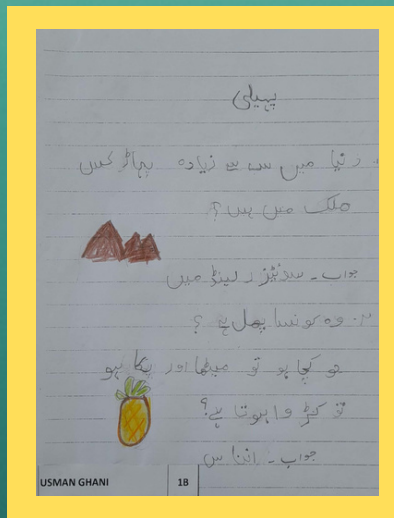 پہیلی
دنیا میں سب سے زیادہ پہاڑ کس
ملک میں ہیں؟
جواب۔ سوئیٹزر لینڈ میں
۲۔ وہ کونسا پھل ہے؟
جو کچا ہو تو میٹھا اور پکا ہو
تو کڑوا ہوتا ہے؟
جواب۔ انناس
USMAN GHANI 1B